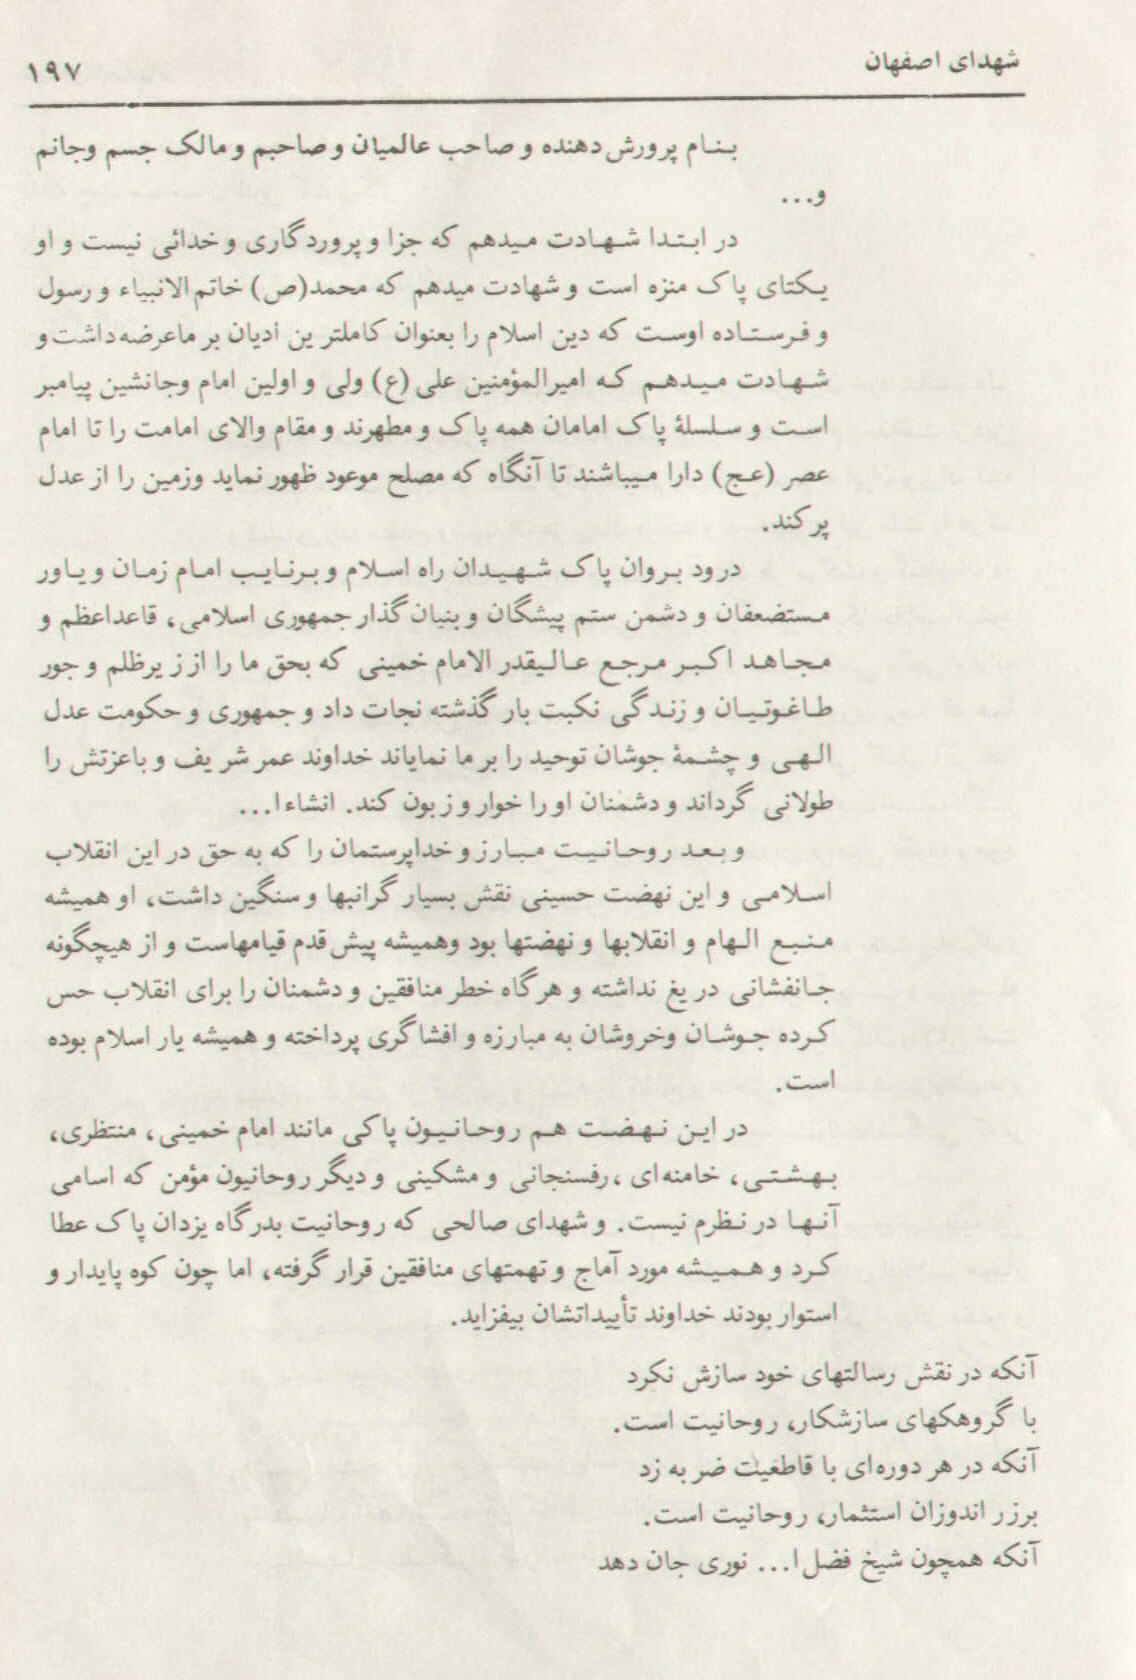 شهدای اصفهان
۱۹۷
بنام پرورش دهنده و صاحب عالمیان و صاحبم و مالک جسم وجانم
و...
در ابتدا شهادت میدهم که جزا و پروردگاری و خدائی نیست و او
یکتای پاک منزه است و شهادت میدهم که محمد(ص) خاتم الانبیاء و رسول
و فرستاده اوست که دین اسلام را بعنوان کاملترین ادیان بر ماعرضه داشت و
شهادت میدهم که امیرالمؤمنین علی (ع) ولی و اولین امام وجانشین پیامبر
است و سلسلۀ پاک امامان همه پاک و مطهرند و مقام والای امامت را تا امام
عصر (عج) دارا میباشند تا آنگاه که مصلح موعود ظهور نماید وزمین را از عدل
پر کند.
درود بروان پاک شهیدان راه اسلام و برنایب امام زمان و یاور
مستضعفان و دشمن ستم پیشگان و بنیان گذار جمهوری اسلامی، قاعداعظم و
مجاهد اکبر مرجع عالیقدر الامام خمینی که بحق ما را از زیرظلم و جور
طاغوتیان و زندگی نکبت بار گذشته نجات داد و جمهوری و حکومت عدل
الهی و چشمۀ جوشان توحید را بر ما نمایاند خداوند عمر شریف و باعزتش را
طولانی گرداند و دشمنان او را خوار و زبون کند. انشاءا...
و بعد روحانیت مبارز و خداپرستمان را که به حق در این انقلاب
اسلامی و این نهضت حسینی نقش بسیار گرانبها و سنگین داشت، او همیشه
منبع الهام و انقلابها و نهضتها بود وهمیشه پیش قدم قیامهاست و از هیچگونه
جانفشانی دریغ نداشته و هرگاه خطر منافقین و دشمنان را برای انقلاب حس
کرده جوشان وخروشان به مبارزه و افشاگری پرداخته و همیشه یار اسلام بوده
است.
در این نهضت هم روحانیون پاکی مانند امام خمینی، منتظری،
بهشتی، خامنه‌ای ،رفسنجانی و مشکینی و دیگر روحانیون مؤمن که اسامی
آنها در نظرم نیست. و شهدای صالحی که روحانیت بدرگاه یزدان پاک عطا
کرد و همیشه مورد آماج و تهمتهای منافقین قرار گرفته، اما چون کوه پایدار و
استوار بودند خداوند تأییداتشان بیفزاید.
آنکه در نقش رسالتهای خود سازش نکرد
با گروهکهای سازشکار، روحانیت است.
آنکه در هر دوره‌ای با قاطعیت ضربه زد
برزر اندوزان استثمار، روحانیت است.
آنکه همچون شیخ فضل ا... نوری جان دهد